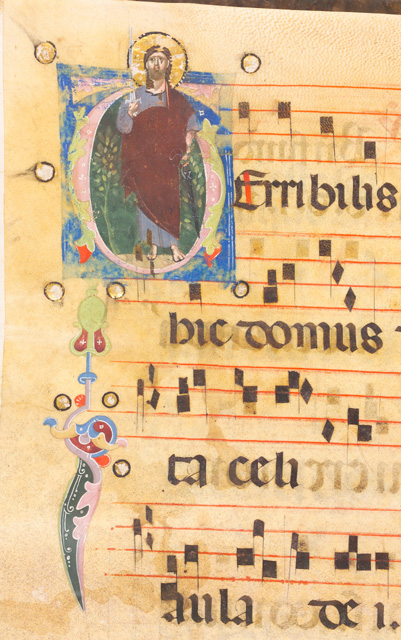 Erribilis
hic domus
ta celi
aula de i.